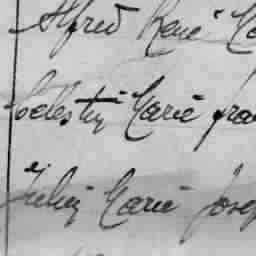 Alfred René
Célestin Marie fra
Julien Marie Jose